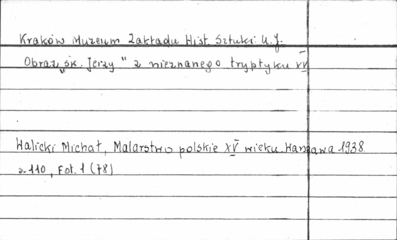 Kraków Muzeum Zakładu Hist. Sztuki U.J.
Obraz „św. Jerzy" z nieznanego tryptyku XV
Walicki Michał, Malarstwo polskie XV wieku. Warszawa 1938
s. 110, Fot. 1 (78)